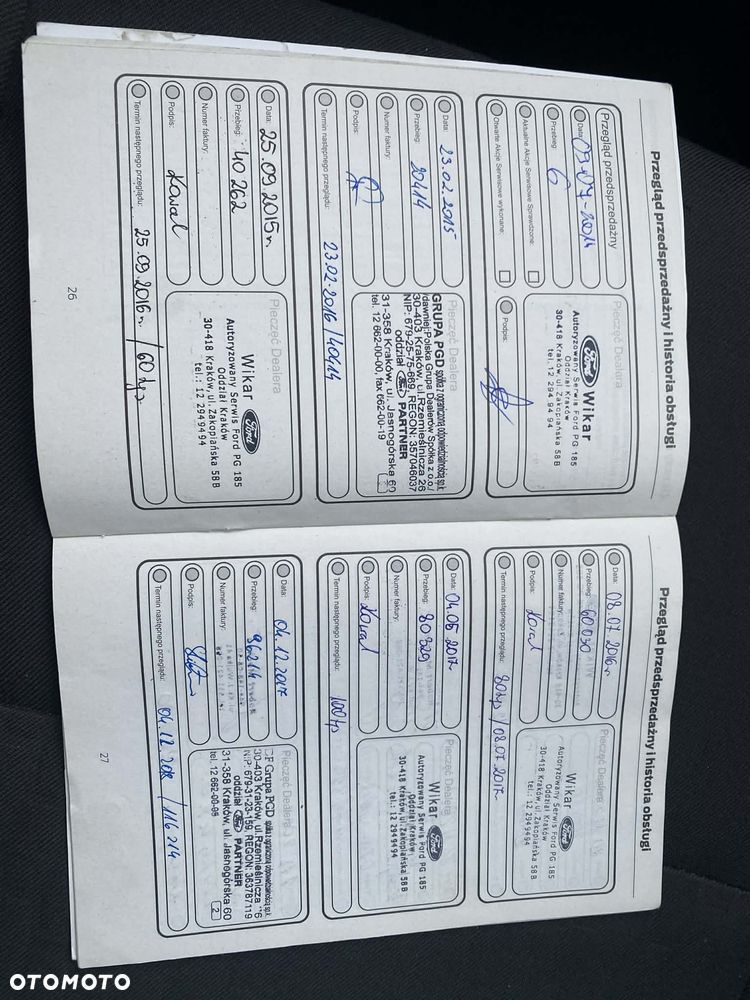 Przegląd przedsprzedażny i historia obsługi
Przegląd przedsprzedażny
Data: 09-07-2014
Przebieg: 6
Aktualne Akcje Serwisowe Sprawdzone:
Otwarte Akcje Serwisowe wykonane:
Pieczęć Dealera
Ford Wikar
Autoryzowany Serwis Ford PG 185
Oddział Kraków
30-418 Kraków, ul. Zakopiańska 58 B
tel. 12 294 94 94
Podpis:
Data: 23.02.2015
Przebieg: 20414
Numer faktury:
Podpis:
Termin następnego przeglądu: 23.02.2016 / 40414
Pieczęć Dealera
GRUPA PGD spółka z ograniczoną odpowiedzialnością sp.k.
/dawniej:Polska Grupa Dealerów Spółka z o.o./
30-403 Kraków, ul.Rzemieślnicza 26
NIP: 679-25-75-669, REGON: 357046037
oddział Ford PARTNER
31-358 Kraków, ul. Jasnogórska 60
tel. 12 662-00-00, fax 662-00-19
Data: 25.09.2015r.
Przebieg: 40 262
Numer faktury:
Podpis: Kowal
Termin następnego przeglądu: 25.09.2016r. / 60 typ
Pieczęć Dealera
Wikar
Ford
Autoryzowany Serwis Ford PG 185
Oddział Kraków
30-418 Kraków, ul. Zakopiańska 58 B
tel.: 12 294 94 94
26
Przegląd przedsprzedażny i historia obsługi
Data: 08.07.2016r
Przebieg: 60050
Numer faktury:
Podpis: Kowal
Termin następnego przeglądu: 80 typ / 08.07.2017r
Pieczęć Dealera
Wikar
Ford
Autoryzowany Serwis Ford PG 185
Oddział Kraków
30-418 Kraków, ul. Zakopiańska 58 B
tel.: 12 294 94 94
Data: 04.05.2017r
Przebieg: 80329
Numer faktury:
Podpis: Kowal
Termin następnego przeglądu: 100 typ
Pieczęć Dealera
Wikar
Ford
Autoryzowany Serwis Ford PG 185
Oddział Kraków
30-418 Kraków, ul. Zakopiańska 58 B
tel.: 12 294 94 94
Data: 04.12.2017
Przebieg: 96214
Numer faktury:
Podpis:
Termin następnego przeglądu: 04.12.2018 / 116 214
Pieczęć Dealera
CF Grupa PGD spółka z ograniczoną odpowiedzialnością sp.k.
30-403 Kraków, ul.Rzemieślnicza 26
NIP: 679-31-23-159, REGON: 363787119
oddział Ford PARTNER
31-358 Kraków, ul. Jasnogórska 60
tel. 12 662-00-05
2
27
OTOMOTO